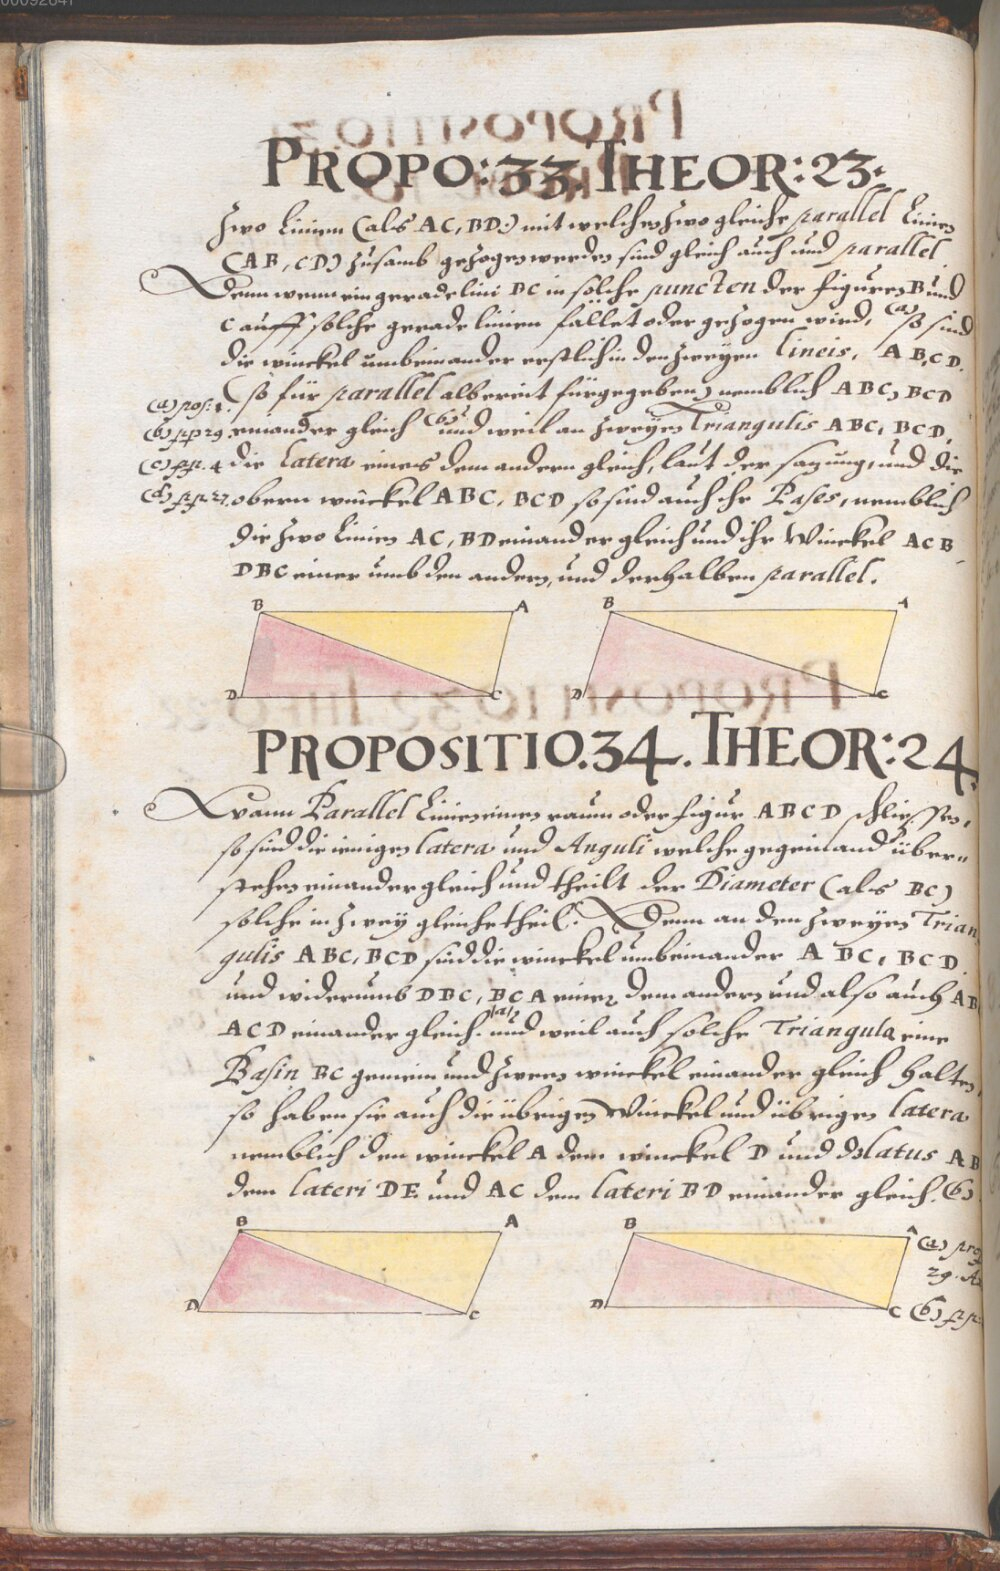 PROPO: 33. THEOR: 23.
Zwo Linien (als AC, BD) mit welchen zwo gleiche parallel Linien
(AB, CD) zusamb gezogen werden sind gleich auch und parallel
Denn wenn ein gerade lini BC in solche puncten der figuren B und
C auff solche gerade linien fället oder gezogen wird, (a) so sind
die winckel umbeinander erstlich in den zweyen lineis, AB, CD.
(so für parallel albereit fürgegeben) nemblich ABC, BCD
(a) pos: 1.
(b) pp 29 einander gleich (b) und weil an zweyen Triangulis ABC, BCD,
(c) pp. 4 die Latera eines dem andern gleich, laut der sazung, und die
(d) pp 27. obern winckel ABC, BCD so sind auch ihr Bases, nemblich
die zwo Linien AC, BD einander gleich und ihr Winckel ACB
DBC einer umb den andern, und derhalben parallel.
B A B A
D C D C
PROPOSITIO. 34. THEOR: 24.
Wann Parallel Linien einen raum oder figur ABCD schliessen,
so sind die ienigen latera und Anguli welche gegeneinand über=
stehen einander gleich und theilt der Diameter (als BC)
solche in zwey gleiche theil. Denn an den zweyen Trian
gulis ABC, BCD sind die winckel umbeinander ABC, BCD
und widerumb DBC, BCA einer dem andern und also auch AB
ACD einander gleich. (a) und weil auch solche Triangula eine
Basin BC gemein und zween winckel einander gleich halten,
so haben sie auch die übrigen Winckel und übrigen latera
nemblich den winckel A dem winckel D und ds latus AB
dem lateri DE und AC dem lateri BD einander gleich. (b)
B A B A
(a) pro
29.
D C D C (b) pp: